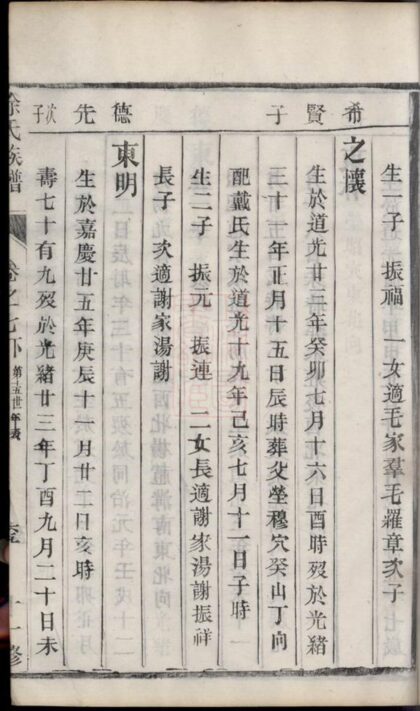 希賢子
生一子 振福 一女適毛家羣毛羅章次子
之懷
生於道光廿三年癸卯七月十六日酉時歿於光緒
三十一年正月十五日辰時葬父塋穆穴癸山丁向
配戴氏生於道光十九年己亥七月十一日子時
生二子 振元 振連 二女長適謝家湯謝振祥
長子次適謝家湯謝
德先次子
東明
生於嘉慶廿五年庚辰十一月廿二日亥時
壽七十有九歿於光緒廿三年丁酉九月二十日未
徐氏族譜
卷之七下 第十五世年表
修